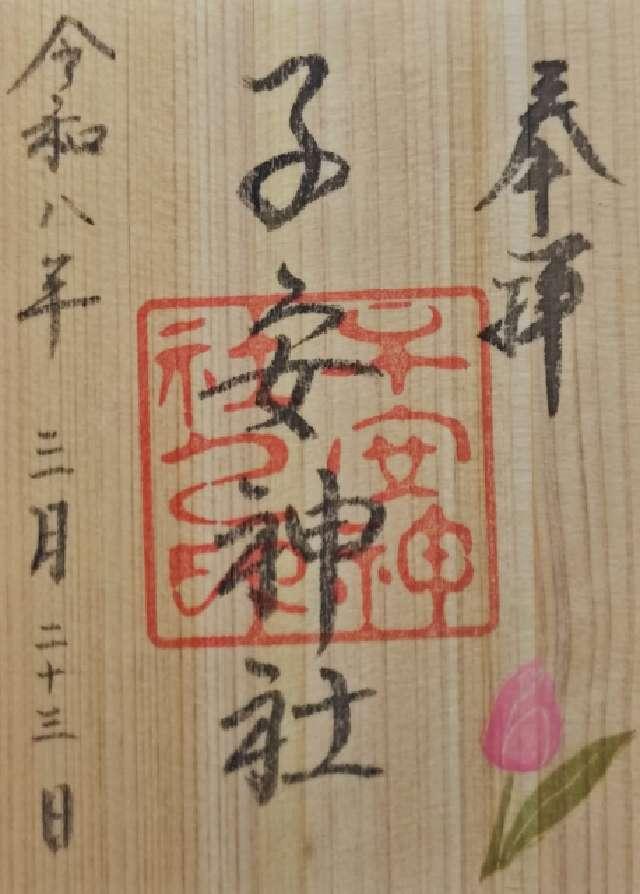 奉拝
子安神社
子安神社之印
令和八年 三月 二十三日